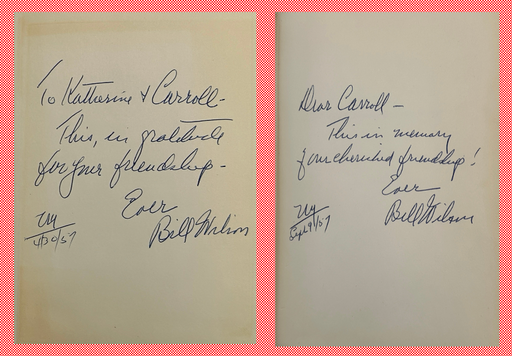 To Katherine & Carroll-
This, in gratitude
for your friendship -
Ever
Bill Wilson
NY
4/30/57
Dear Carroll —
This in memory
of our cherished friendship!
Ever
Bill Wilson
NY
Sept 9/57